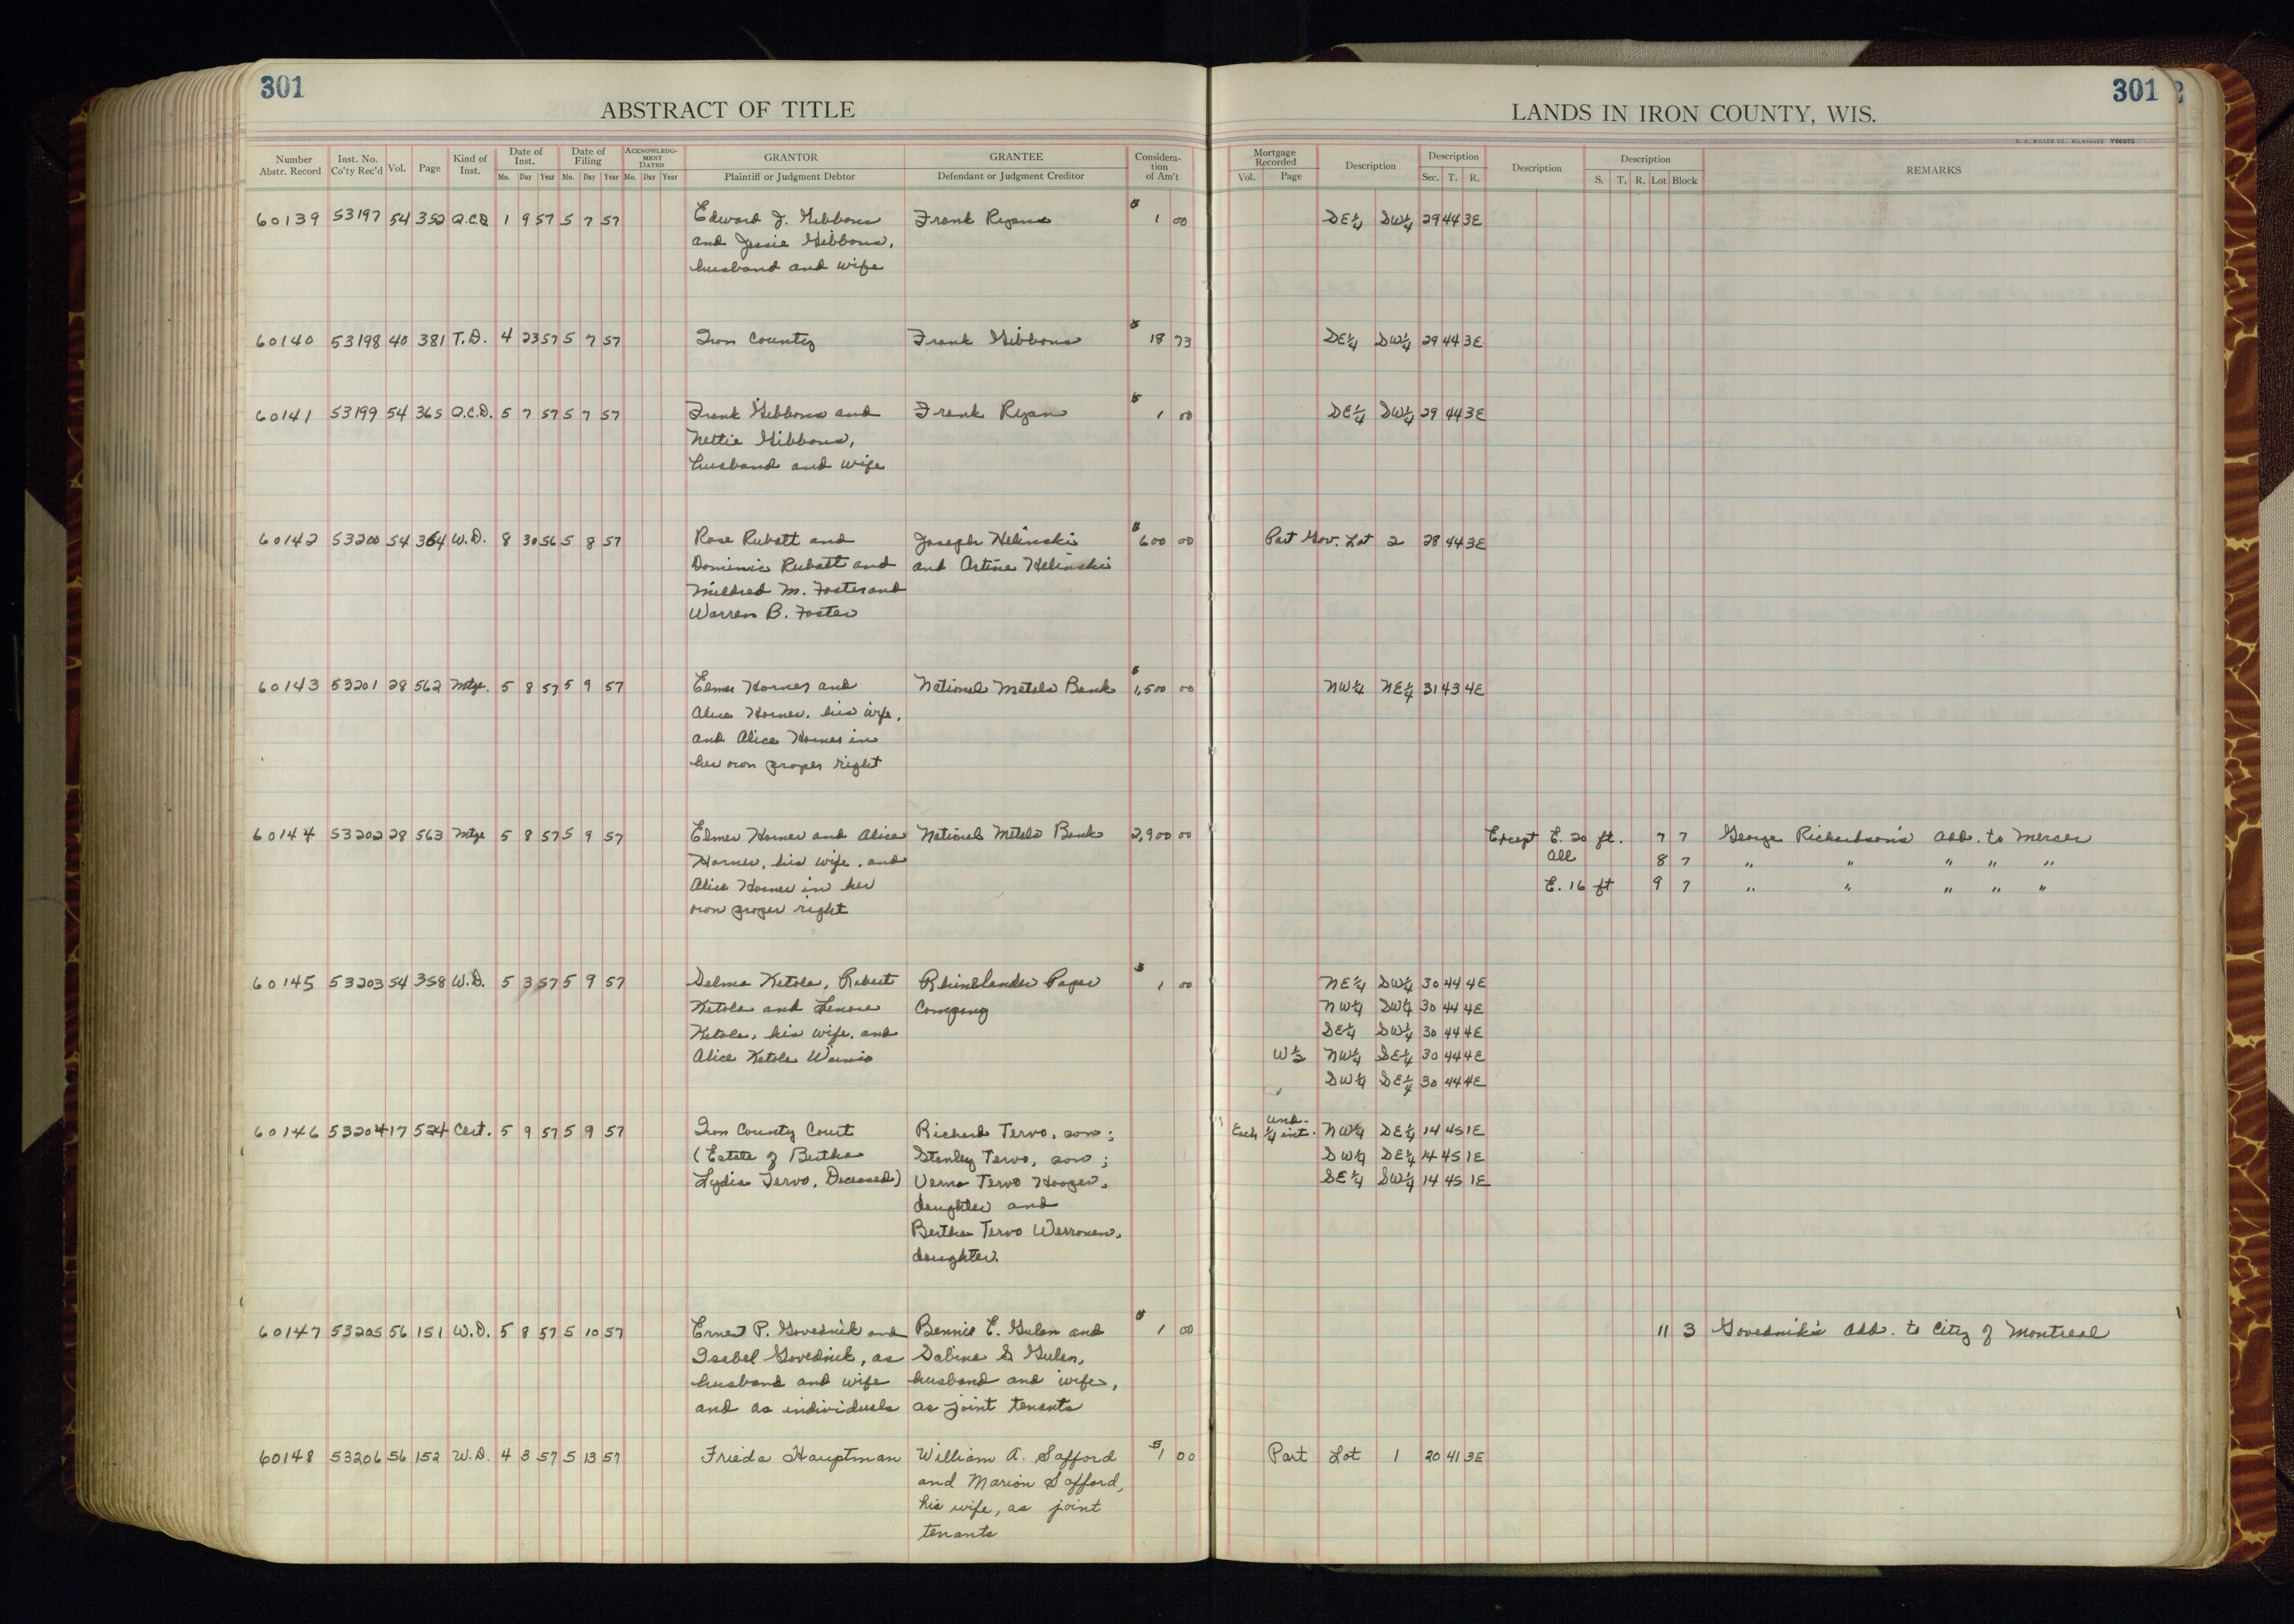 301
301
ABSTRACT OF TITLE
LANDS IN IRON COUNTY, WIS.
H. C. MILLER CO., MILWAUKEE Y66655
Number Abstr. Record Inst. No. Co'ty Rec'd Vol. Page Kind of Inst. Date of Inst. Mo. Day Year Date of Filing Mo. Day Year ACKNOWLEDGMENT DATED Mo. Day Year GRANTOR Plaintiff or Judgment Debtor GRANTEE Defendant or Judgment Creditor Consideration of Am't
Mortgage Recorded Vol. Page Description Description Sec. T. R. Description Description S. T. R. Lot Block REMARKS
60139 53197 54 352 Q.C.D. 1 9 57 5 7 57 Edward J. Gibbons Frank Ryans $ 1 00 SE¼ SW¼ 29 44 3E
and Jessie Gibbons,
husband and wife
60140 53198 40 381 T.D. 4 23 57 5 7 57 Iron County Frank Gibbons $ 18 73 SE¼ SW¼ 29 44 3E
60141 53199 54 365 Q.C.D. 5 7 57 5 7 57 Frank Gibbons and Frank Ryan $ 1 00 SE¼ SW¼ 29 44 3E
Nettie Gibbons,
husband and wife
60142 53200 54 364 W.D. 8 30 56 5 8 57 Rose Rubatt and Joseph Helinski $ 600 00 Part Gov. Lot 2 28 44 3E
Dominic Rubatt and and Artine Helinski
Mildred M. Foster and
Warren B. Foster
60143 53201 28 562 Mtge. 5 8 57 5 9 57 Elmer Horner and National Metals Bank $ 1,500 00 NW¼ NE¼ 31 43 4E
Alice Horner, his wife,
and Alice Horner in
her own proper right
60144 53202 28 563 Mtge 5 8 57 5 9 57 Elmer Horner and Alice National Metals Bank 2,900 00 Except E. 20 ft. 7 7 George Richardson's Add. to Mercer
Horner, his wife, and All 8 7 " " " " "
Alice Horner in her E. 16 ft 9 7 " " " " "
own proper right
60145 53203 54 358 W.D. 5 3 57 5 9 57 Selma Ketola, Robert Rhinelander Paper $ 1 00 NE¼ SW¼ 30 44 4E
Ketola and Lenore Company NW¼ SW¼ 30 44 4E
Ketola, his wife, and SE¼ SW¼ 30 44 4E
Alice Ketola Wainio W½ NW¼ SE¼ 30 44 4E
SW¼ SE¼ 30 44 4E
60146 53204 17 524 Cert. 5 9 57 5 9 57 Iron County Court Richard Tervo, son; Each und. ¼ int. NW¼ SE¼ 14 45 1E
(Estate of Bertha Stanley Tervo, son; SW¼ SE¼ 14 45 1E
Lydia Tervo, Deceased) Verna Tervo Hooper, SE¼ SW¼ 14 45 1E
daughter and
Bertha Tervo Werronen,
daughter.
60147 53205 56 151 W.D. 5 8 57 5 10 57 Ernest P. Govednik and Bennie E. Gulan and $ 1 00 11 3 Govednik's Add. to City of Montreal
Isabel Govednik, as Sabina S. Gulan,
husband and wife husband and wife,
and as individuals as joint tenants
60148 53206 56 152 W.D. 4 3 57 5 13 57 Frieda Hauptman William A. Safford $1 00 Part Lot 1 20 41 3E
and Marion Safford,
his wife, as joint
tenants